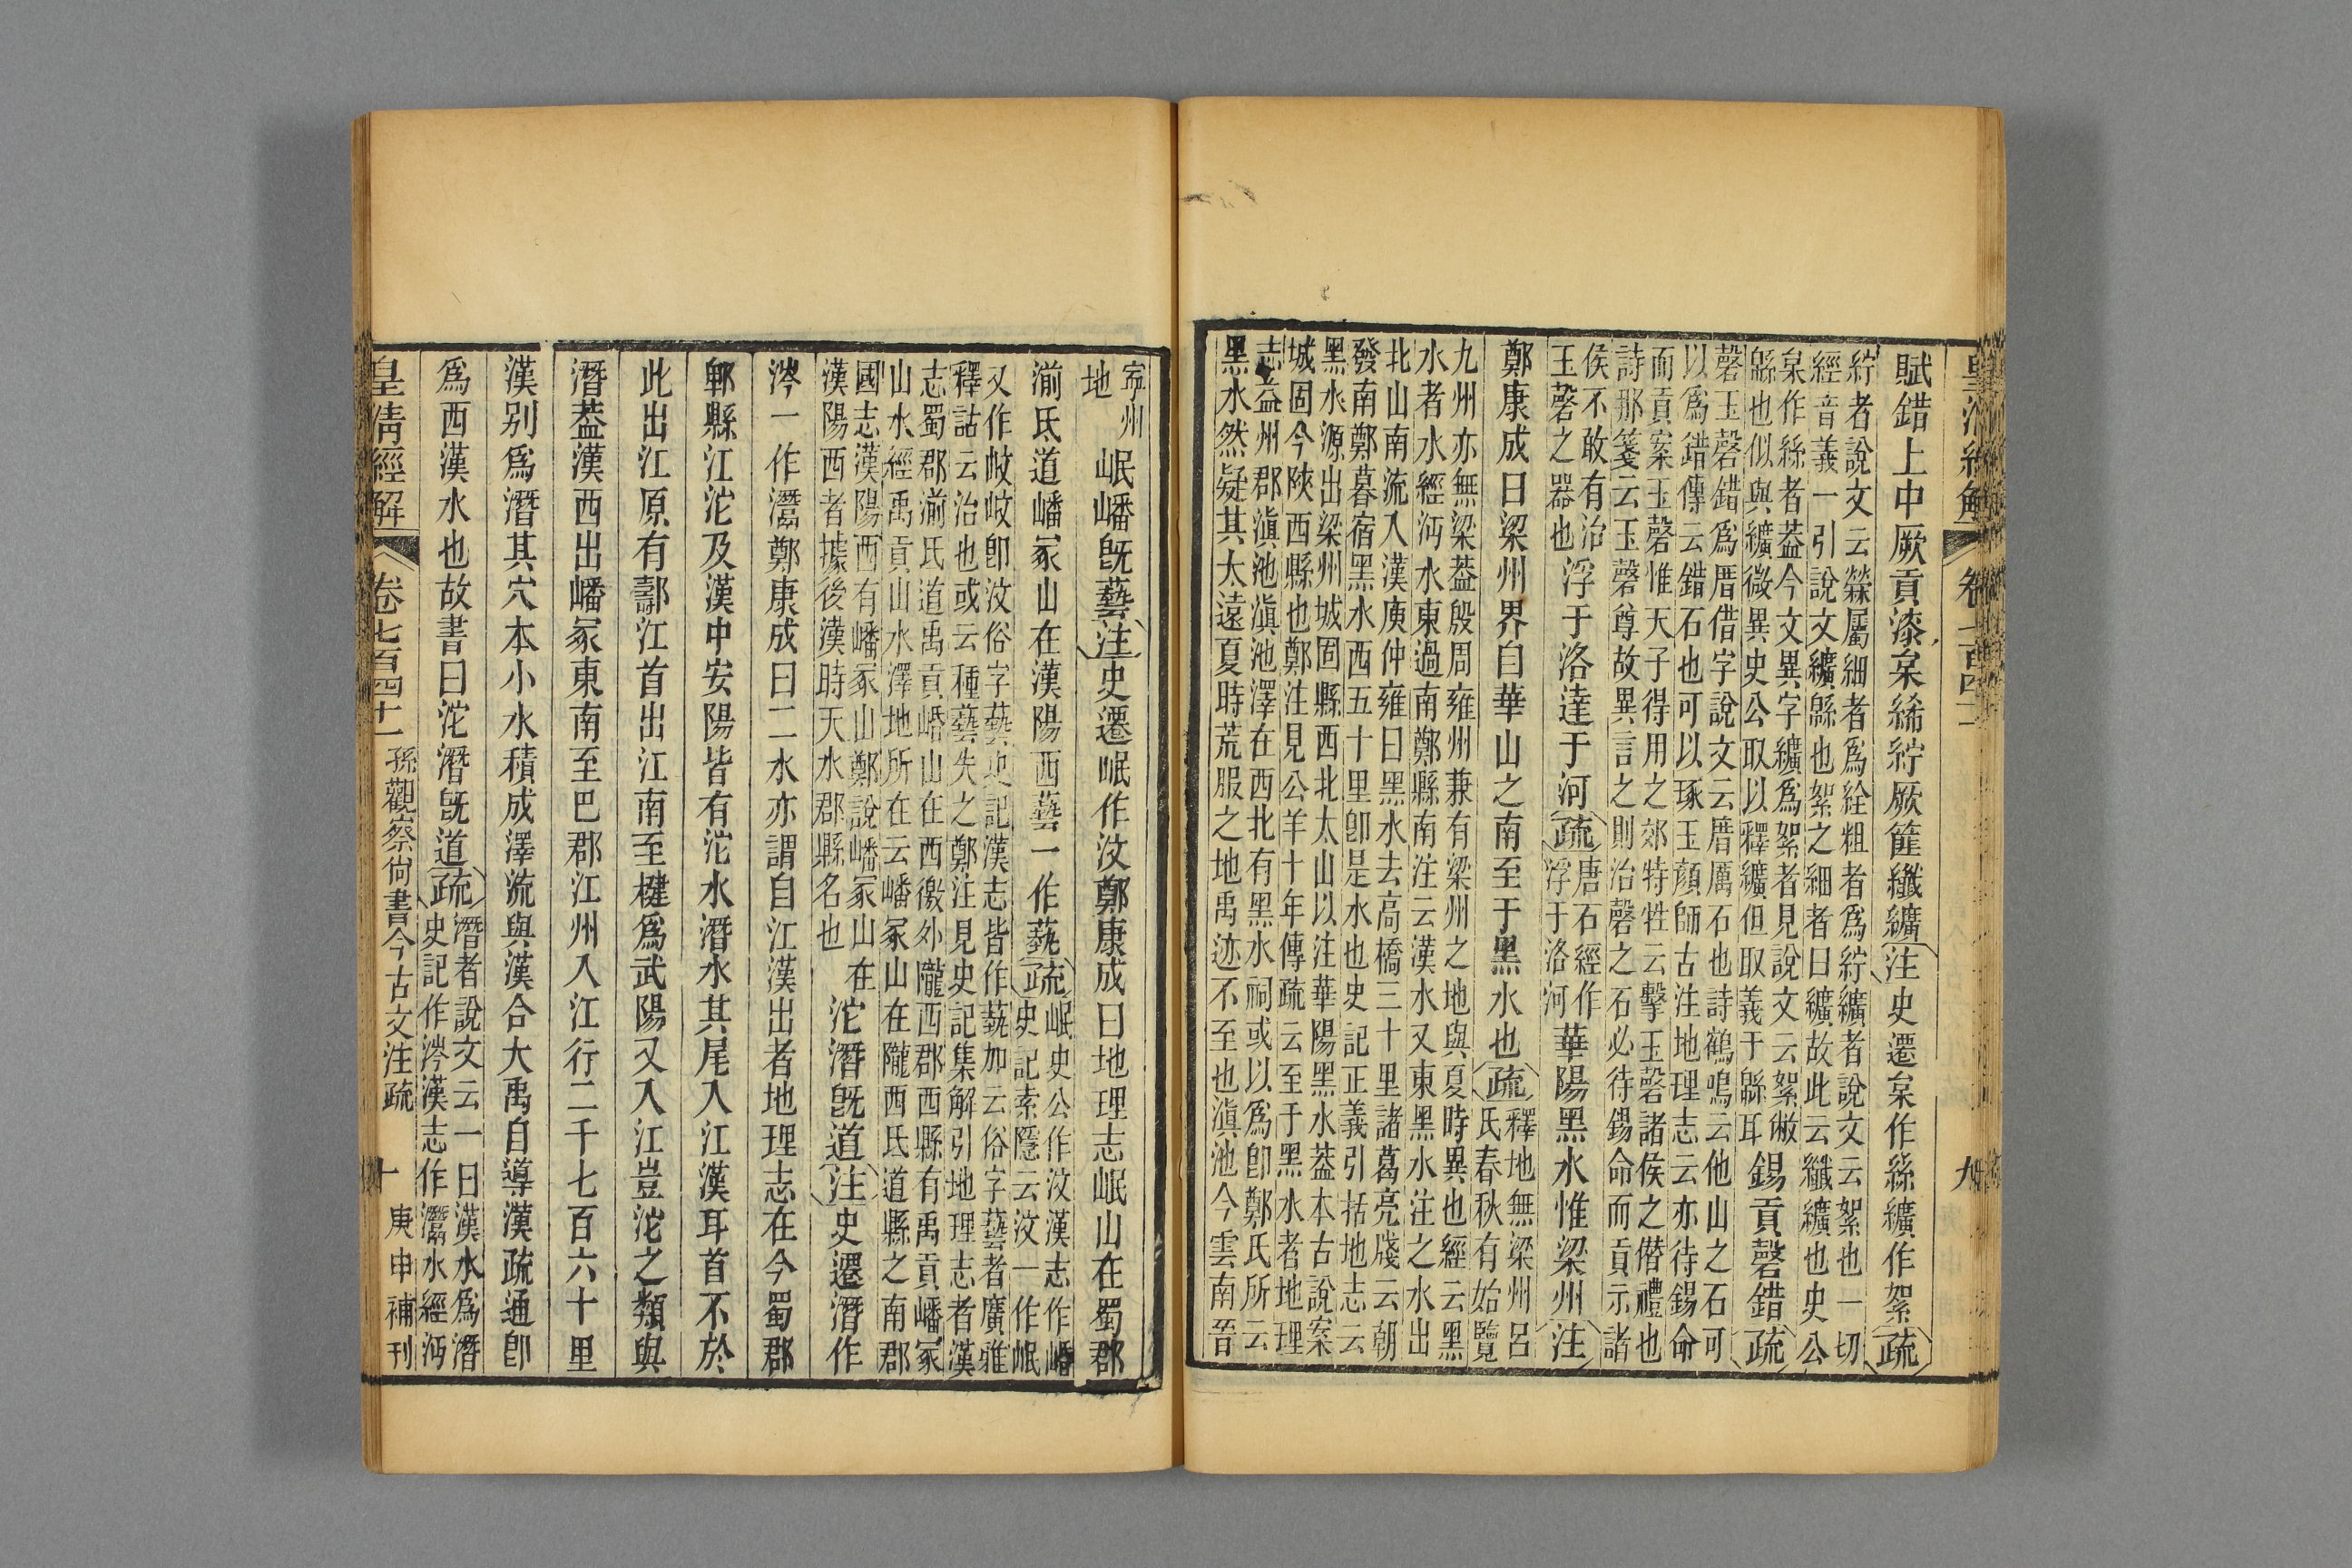 皇清經解 卷七百四十一 九
賦錯上中厥貢漆枲絺紵厥篚纖纊注史遷枲作絲纊作絮疏
紵者說文云檾屬細者爲絟粗者爲紵纊者說文云絮也一切
經音義一引說文纊緜也絮之細者曰纊故此云纖纊也史公
枲作絲者葢今文異字纊爲絮者見說文云絮敝
緜也似與纊微異史公取以釋纊但取義于緜耳
錫貢磬錯疏
磬玉磬錯爲厝借字說文云厝厲石也詩鶴鳴云他山之石可
以爲錯傳云錯石也可以琢玉顏師古注地理志云亦待錫命
而貢案玉磬惟天子得用之郊特牲云擊玉磬諸侯之僭禮也
詩那箋云玉磬尊故異言之則治磬之石必待錫命而貢示諸
侯不敢有治
玉磬之器也
浮于洛達于河疏
唐石經作
浮于洛河
華陽黑水惟梁州注
鄭康成曰梁州界自華山之南至于黑水也疏
釋地無梁州呂
氏春秋有始覽
九州亦無梁葢殷周雍州兼有梁州之地與夏時異也經云黑
水者水經沔水東過南鄭縣南注云漢水又東黑水注之水出
北山南流入漢庾仲雍曰黑水去高橋三十里諸葛亮牋云朝
發南鄭暮宿黑水西五十里卽是水也史記正義引括地志云
黑水源出梁州城固縣西北太山以注華陽黑水葢本古說案
城固今陝西縣也鄭注見公羊十年傳疏云至于黑水者地理
志益州郡滇池滇池澤在西北有黑水祠或以爲卽鄭氏所云
黑水然疑其太遠夏時荒服之地禹迹不至也滇池今雲南晉
寍州
地
岷嶓旣藝注史遷岷作汶鄭康成曰地理志岷山在蜀郡
湔氐道嶓冢山在漢陽西藝一作蓺疏
岷史公作汶漢志作㟭
史記索隱云汶一作岷
又作岐岐卽汶俗字藝史記漢志皆作蓺加云俗字藝者廣雅
釋詁云治也或云種藝失之鄭注見史記集解引地理志者漢
志蜀郡湔氐道禹貢㟭山在西徼外隴西郡西縣有禹貢嶓冢
山水經禹貢山水澤地所在云嶓冢山在隴西氐道縣之南郡
國志漢陽西有嶓冢山鄭說嶓冢山在
漢陽西者據後漢時天水郡縣名也
沱潛旣道注史遷潛作
涔一作灊鄭康成曰二水亦謂自江漢出者地理志在今蜀郡
郫縣江沱及漢中安陽皆有沱水潛水其尾入江漢耳首不於
此出江原有䣝江首出江南至犍爲武陽又入江豈沱之類與
潛葢漢西出嶓冢東南至巴郡江州入江行二千七百六十里
漢別爲潛其穴本小水積成澤流與漢合大禹自導漢疏通卽
爲西漢水也故書曰沱潛旣道疏
潛者說文云一曰漢水爲潛
史記作涔漢志作灊水經沔
皇清經解 卷七百四十一 孫觀察尙書今古文注疏 十 庚申補刊